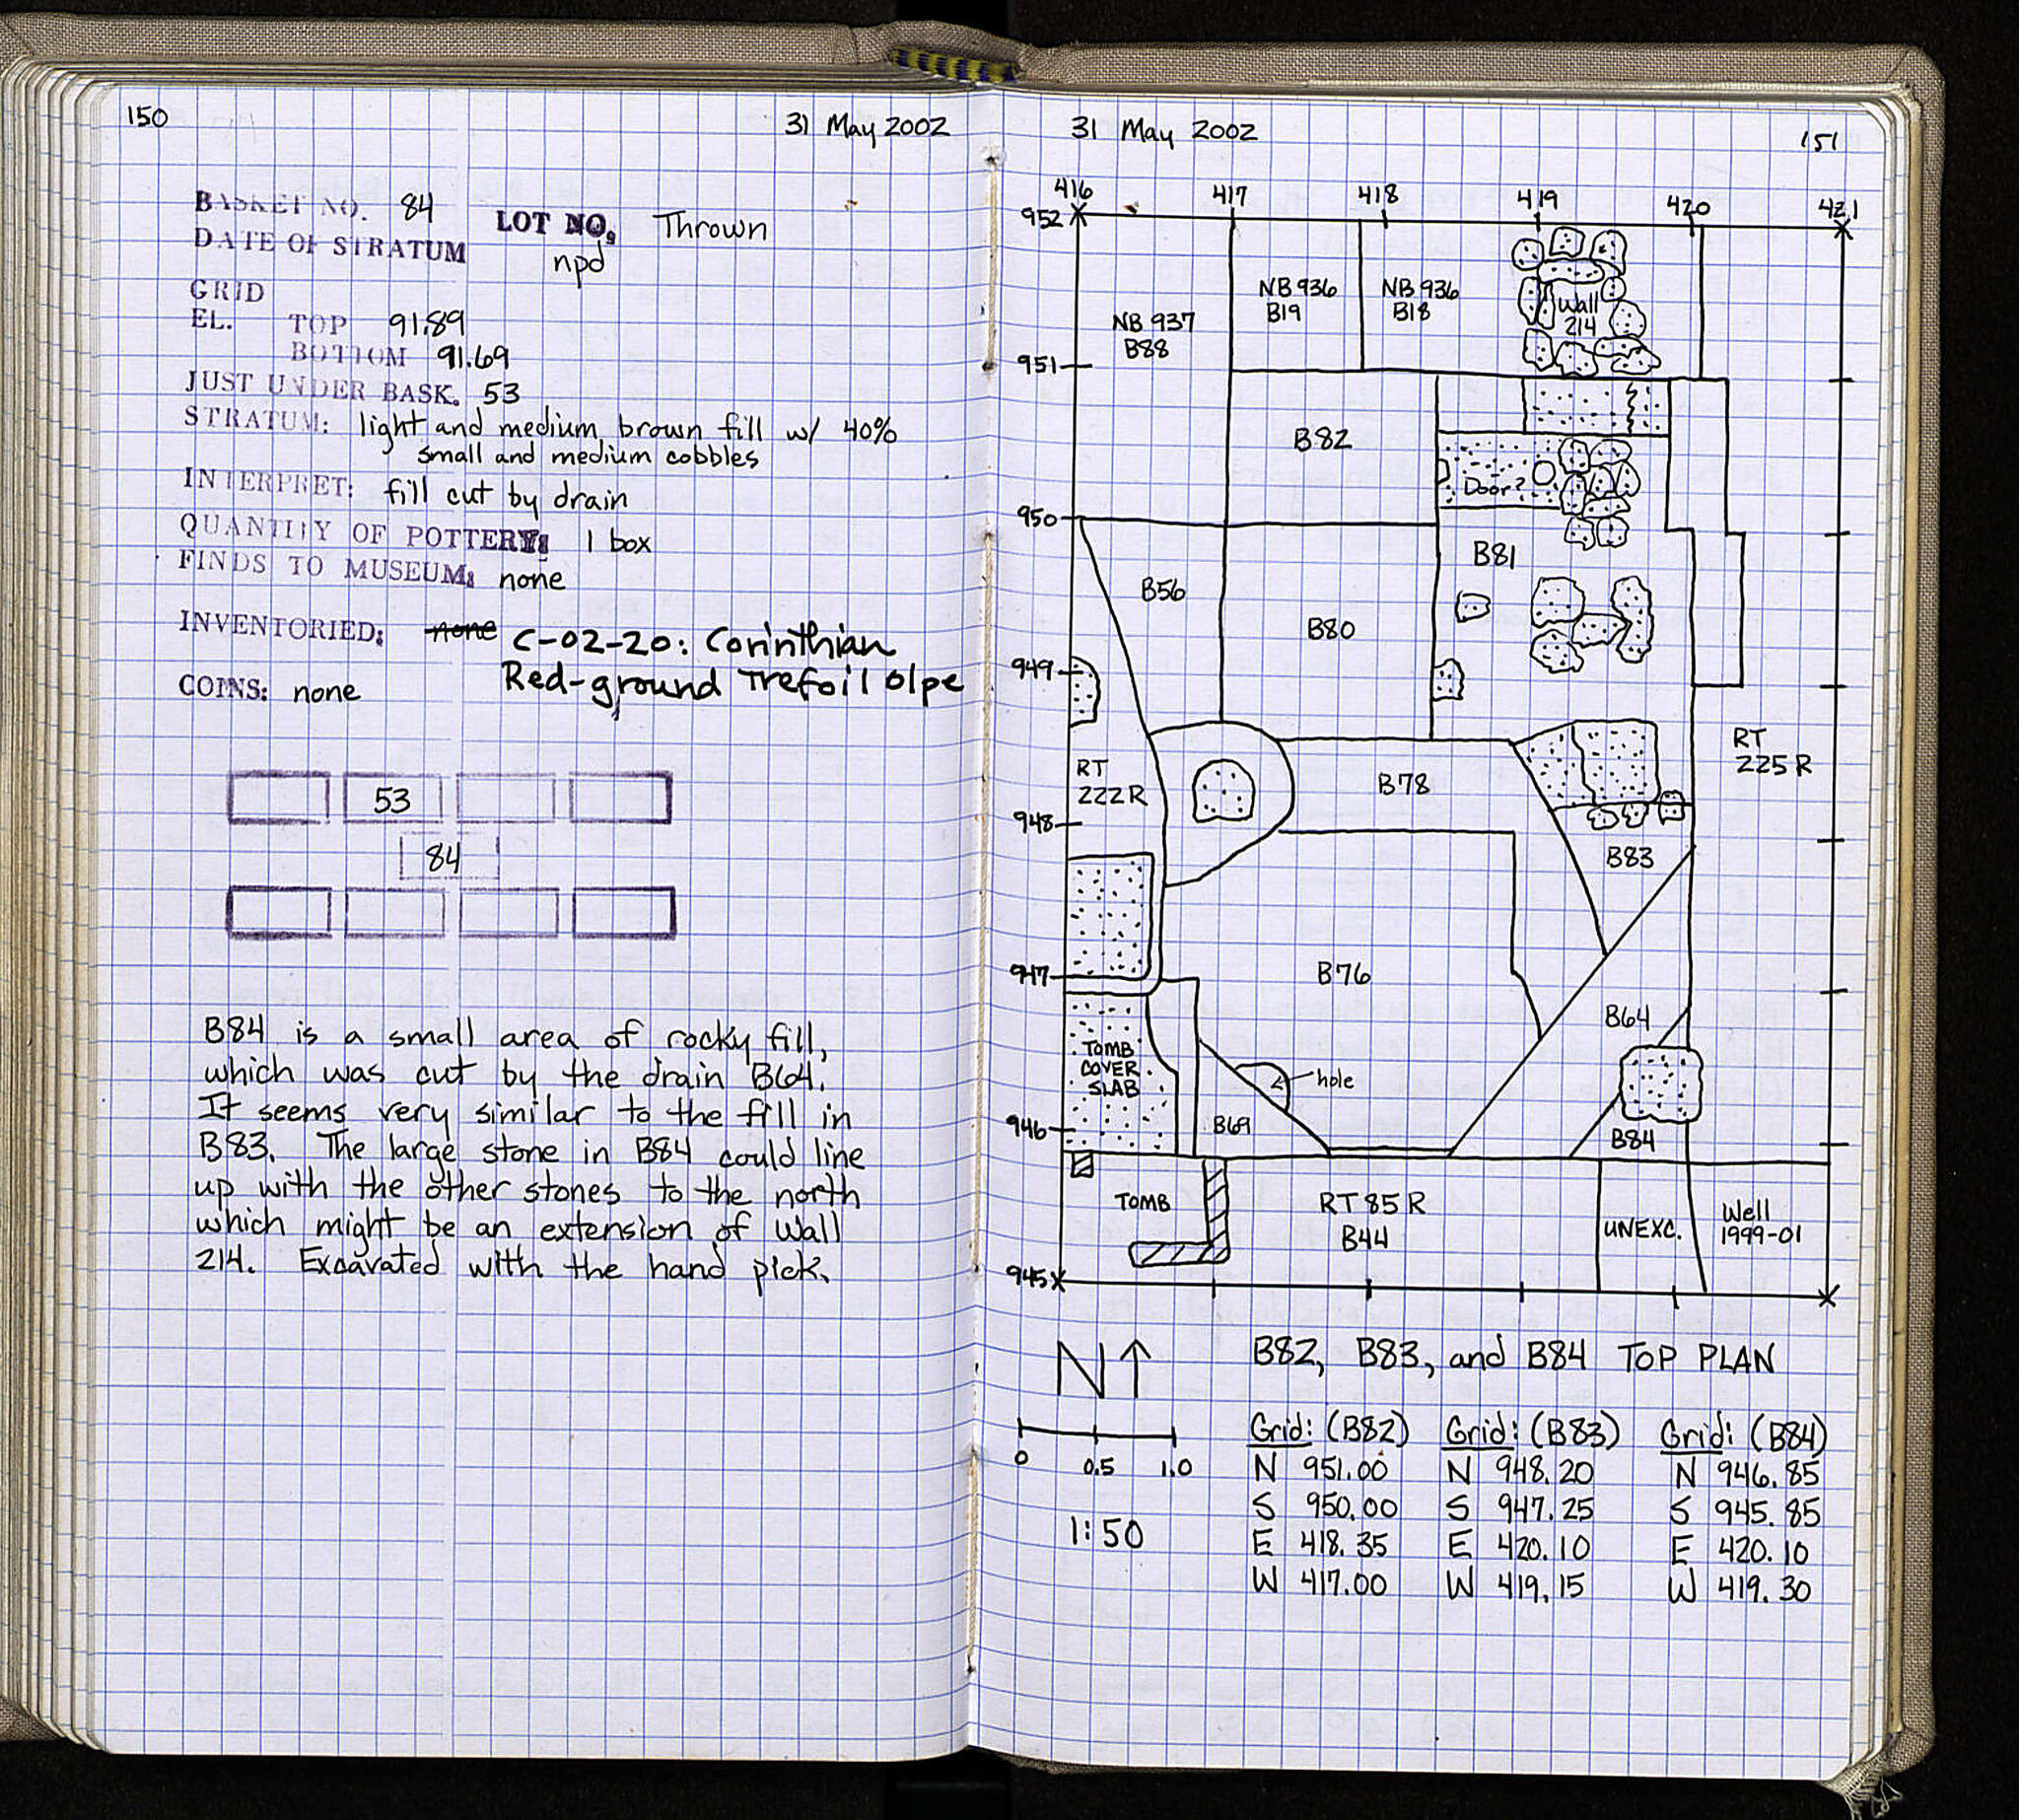 150
31 May 2002
BASKET NO. 84 LOT NO. Thrown
DATE OF STRATUM npd
GRID
EL. TOP 91.89
BOTTOM 91.69
JUST UNDER BASK. 53
STRATUM: light and medium brown fill w/ 40%
small and medium cobbles
INTERPRET: fill cut by drain
QUANTITY OF POTTERY: 1 box
FINDS TO MUSEUM: none
INVENTORIED: none C-02-20: Corinthian
Red-ground Trefoil Olpe
COINS: none
53
84
B84 is a small area of rocky fill,
which was cut by the drain B64.
It seems very similar to the fill in
B83. The large stone in B84 could line
up with the other stones to the north
which might be an extension of Wall
214. Excavated with the hand pick.
31 May 2002
151
416 417 418 419 420 421
952
NB 937
B88
NB 936
B19
NB 936
B18
Wall
214
951
B82
Door?
950
B81
B56
B80
949
RT
222R
B78
RT
225R
948
B83
947
B76
B64
TOMB
COVER
SLAB
hole
946
B69
B84
TOMB
RT 85 R
B44
UNEXC.
Well
1999-01
945
N↑
B82, B83, and B84 TOP PLAN
0 0.5 1.0
1:50
Grid: (B82) Grid: (B83) Grid: (B84)
N 951.00 N 948.20 N 946.85
S 950.00 S 947.25 S 945.85
E 418.35 E 420.10 E 420.10
W 417.00 W 419.15 W 419.30